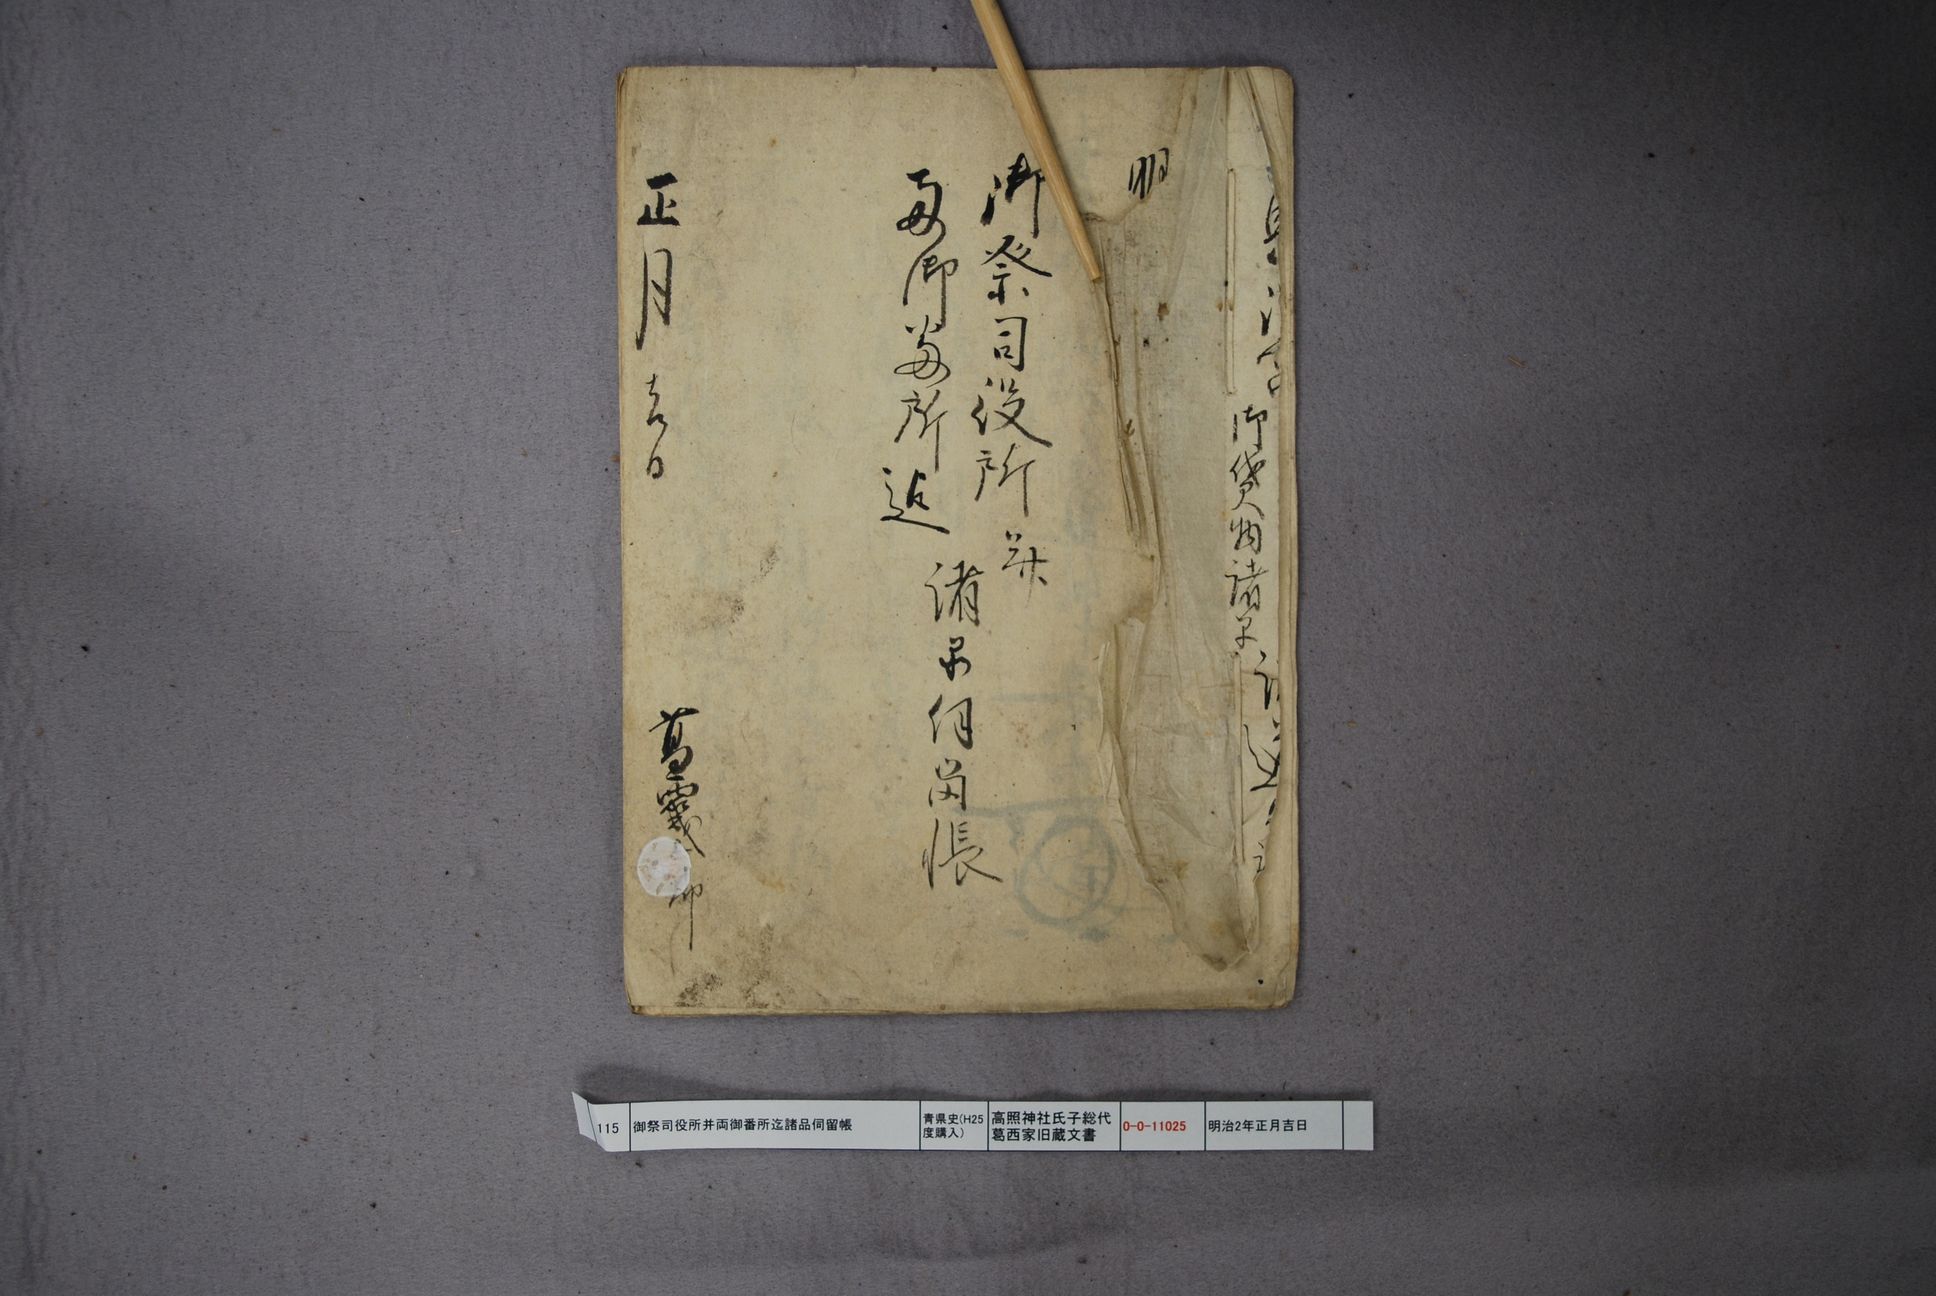 御貸物諸品
明
御祭司役所并
両御番所迄
諸品伺留帳
正月吉日
葛西
115
御祭司役所并両御番所迄諸品伺留帳
青県史(H25
度購入)
高照神社氏子総代
葛西家旧蔵文書
0-0-11025
明治2年正月吉日